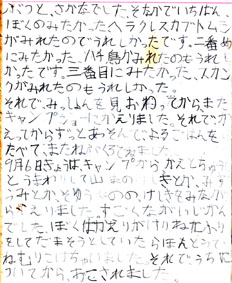 ぶっと、さかなでした。そなかでいちばん、
ぼくのみたかった、ヘラクレスカブトムシ
がみれたのでうれしかったです。二番め
にみたかった、ハチ鳥がみれたのもうれし
かったです。三番目にみたかった、メガ
がみれたのもうれしかった。
それで、みっしょんを見、おわってからまた
キャンプじょうにかえりました。それでか
えってからずっとあそんで、よるごはんを
たべて、またねいてました
9月6日きょうは、キャンプからかえるとちゅう
とうまわりして山のけしきとか、みず
うみとか、そゆうののけしきをみなが
らかえりました。すごくながいじかん
でした。ぼくはかえりがけりねたふり
をしてだまそうとしていたらほんとうに
ねむりこけちゃいました。それで、うちに
ついてから、おこされました。